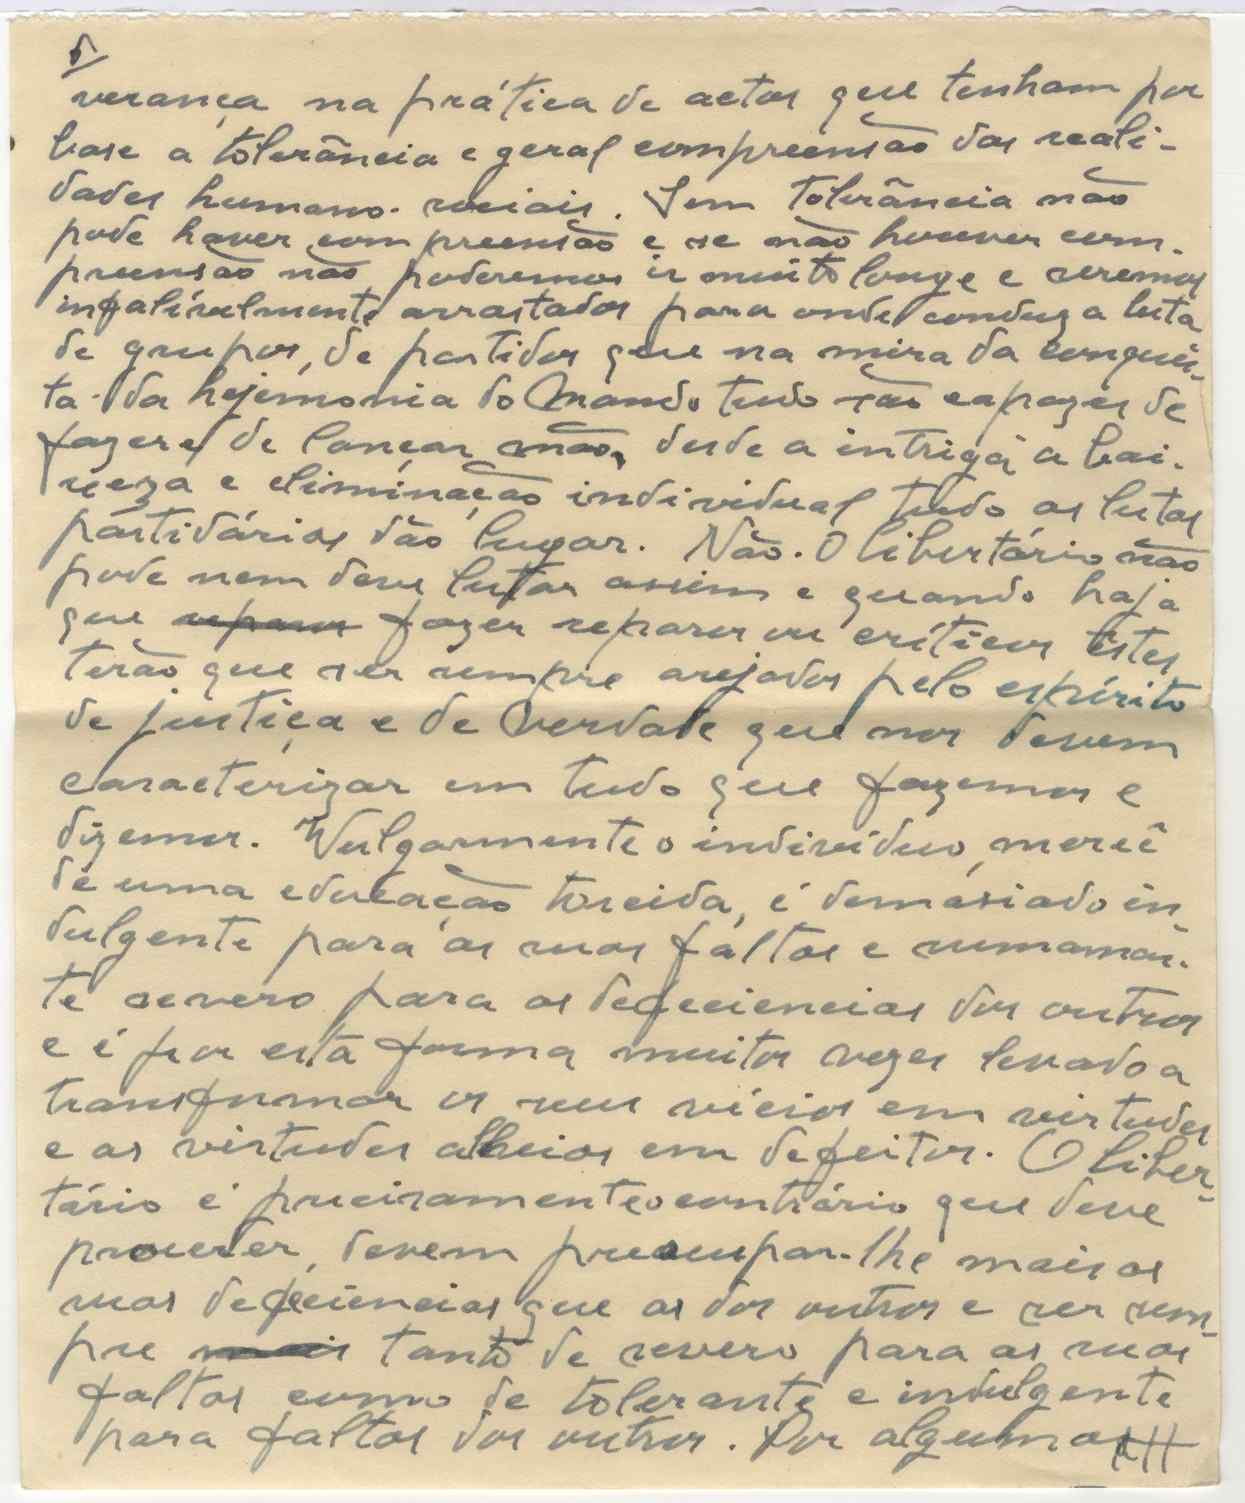 verança na prática de actos que tenham por
base a tolerância e geral compreensão das reali-
dades humano-sociais. Sem tolerância não
pode haver compreensão e se não houver com-
preensão não poderemos ir muito longe e seremos
infalívelmente arrastados para onde conduz a luta
de grupos, de partidos que na mira da conquis-
ta da hejemonia do Mando tudo são capazes de
fazer e de lançar mão, desde a intriga à bai-
xeza e eliminação individual tudo as lutas
partidárias dão lugar. Não. O libertário não
pode nem deve lutar assim e quando haja
que fazer reparos ou críticas êstes
terão que ser sempre arejados pelo espírito
de justiça e de verdade que nos devem
caracterizar em tudo que fazemos e
dizemos. Vulgarmente o indivíduo, mercê
de uma educação torcida, é demasiado in
dulgente para as suas faltas e sumamen-
te severo para as defeciencias dos outros
e é por esta forma muitas vezes levado a
transformar os seus vícios em virtudes
e as virtudes alheias em defeitos. O liber-
tário é precisamente o contrário que deve
proceder, devem preocupar-lhe mais as
suas defeciencias que as dos outros e ser sem-
pre mais tanto de severo para as suas
faltas como de tolerante e indulgente
para faltas dos outros. Por algumas